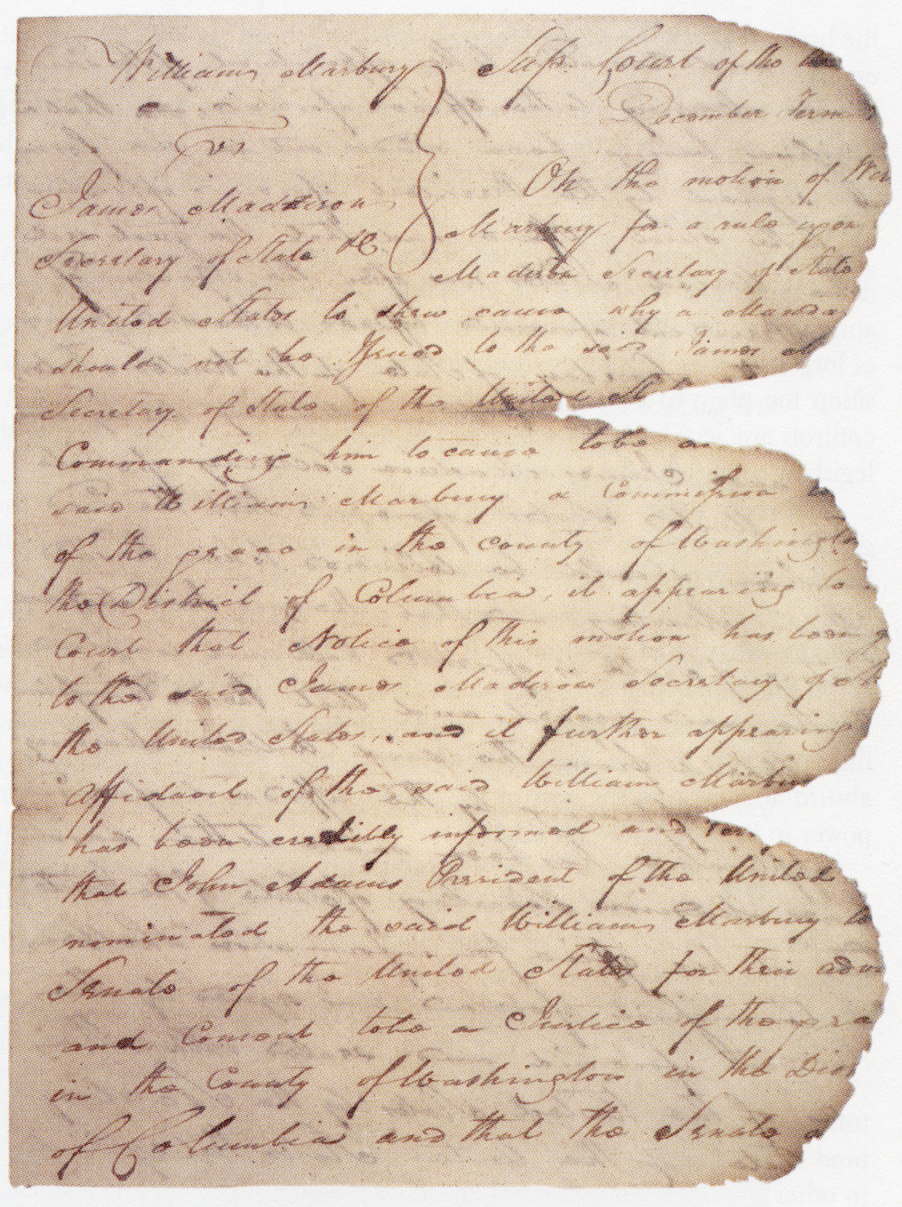 William Marbury
vs
James Maddison
Secretary of State &c
Sup. Court of the
December Term
On the motion of
Marbury for a rule upon
Madison Secretary of State
United States to shew cause why a Manda
should not be Issued to the said James M
Secretary of State of the United St
Commanding him to cause to be
said William Marbury a Commission
of the peace in the county of Washington
the District of Columbia, it appearing to
Court that Notice of this motion has been g
to the said James Madison Secretary of St
the United States, and it further appearing
Affidavit of the said William Marbu
has been credibly informed and
that John Adams President of the United
nominated the said William Marbury to
Senate of the United States for their adv
and Consent to be a Justice of the pea
in the County of Washington in the Dis
of Columbia and that the Senate